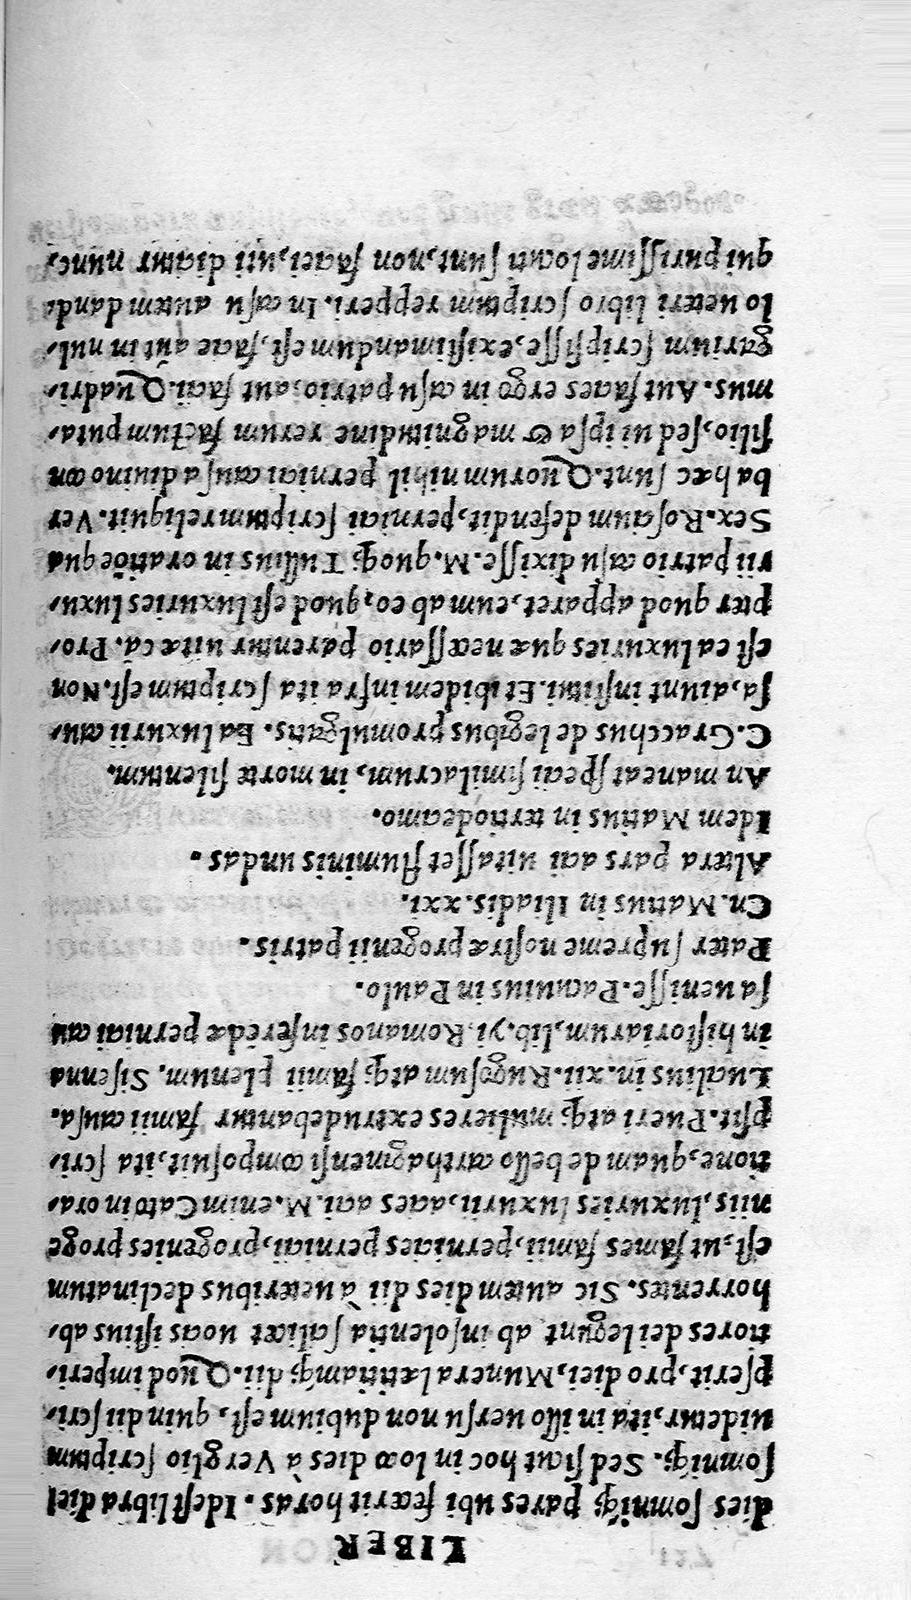 LIBER
dies ſomniq; pares ubi fecerit horas. Ideſt libra diei
ſomniq;. Sed ſicut hoc in loco dies à Verglio ſcriptum
uidetur, ita in illo uerſu non dubium eſt, quin dii ſcri-
pſerit, pro diei, Munera lætitiamq; dii. Quod imperi-
tiores dei legunt ab inſolentia ſalicet uocis iſtius ab-
horrentes. Sic autem dies dii à ueteribus declinatum
eſt, ut fames famii, pernicies pernicii, progenies proge
niis, luxuries luxurii, acies acii. M. enim Cato in ora-
tione, quam de bello carthaginenſi compoſuit, ita ſcri-
pſit. Pueri atq; mulieres extrudebantur famii cauſa.
Lucilius in. xii. Rugoſum atq; famii plenum. Siſenna
in hiſtoriarum, lib. yi. Romanos inferēdæ pernicii cau
ſa ueniſſe. Pacuuius in Paulo.
Pater ſupreme noſtræ progenii patris.
Cn. Matius in Iliadis. xxi.
Altera pars acii uitaſſet fluminis undas.
Idem Matius in tertiodecimo.
An maneat ſpecii ſimilacrum, in morte ſilentum.
C. Gracchus de legibus promulgatis. Ea luxurii cau-
ſa, aiunt inſtitui. Et ibidem infra ita ſcriptum eſt. Non
eſt ea luxuries quæ neceſſario parentur uitæ cā. Pro-
pter quod apparet, eum ab eo, quod eſt luxuries luxu-
rii patrio caſu dixiſſe. M. quoq; Tullius in oratiōe qua
Sex. Roſcium defendit, pernicii ſcriptum reliquit. Ver
ba hæc ſunt. Quorum nihil pernicii cauſa diuino con
ſilio, ſed ui ipſa & magnitudine rerum factum puta-
mus. Aut facies ergo in caſu patrio, aut facii. Quadri-
garium ſcripſiſſe, exiſtimandum eſt, facie aūt in nul-
lo ueteri libro ſcriptum repperi. In caſu autem dandi
qui puriſſime locuti ſunt, non faciei, uti dicitur nunc,